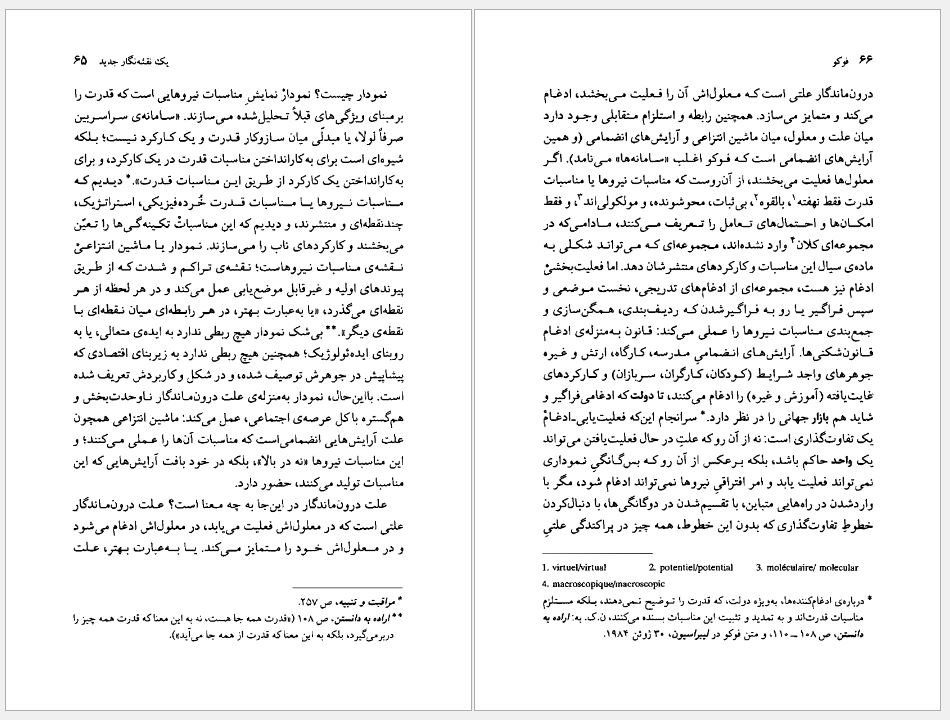 یک نقشه‌نگار جدید ۶۵
نمودار چیست؟ نمودارْ نمایشِ مناسبات نیروهایی است که قدرت را
برمبنای ویژگی‌های قبلاً تحلیل‌شده می‌سازند. «سامانه‌ی سراسربین
صرفاً لولا، یا مبدّلی میان سازوکار قدرت و یک کارکرد نیست؛ بلکه
شیوه‌ای است برای به‌کارانداختن مناسبات قدرت در یک کارکرد، و برای
به‌کارانداختن یک کارکرد از طریق این مناسبات قدرت».* دیدیم که
مناسبات نیروها یا مناسبات قدرت خُرده‌فیزیکی، استراتژیک،
چندنقطه‌ای و منتشرند، و دیدیم که این مناسباتْ تکینه‌گی‌ها را تعیّن
می‌بخشند و کارکردهای ناب را می‌سازند. نمودار یا ماشین انتزاعیْ
نقشه‌ی مناسبات نیروهاست؛ نقشه‌ی تراکم و شدت که از طریق
پیوندهای اولیه و غیرقابل موضع‌یابی عمل می‌کند و در هر لحظه از هر
نقطه‌ای می‌گذرد، «یا به‌عبارت بهتر، در هر رابطه‌ای میان نقطه‌ای با
نقطه‌ی دیگر».** بی‌شک نمودار هیچ ربطی ندارد به ایده‌ی متعالی، یا به
روبنای ایده‌ئولوژیک؛ همچنین هیچ ربطی ندارد به زیربنای اقتصادی که
پیشاپیش در جوهرش توصیف شده، و در شکل و کاربردش تعریف شده
است. بااین‌حال، نمودار به‌منزله‌ی علت درون‌ماندگار ناوحدت‌بخش و
هم‌گستره با کل عرصه‌ی اجتماعی، عمل می‌کند: ماشین انتزاعی همچون
علت آرایش‌هایی انضمامی‌است که مناسبات آن‌ها را عملی می‌کنند؛ و
این مناسبات نیروها «نه در بالا»، بلکه در خود بافت آرایش‌هایی که این
مناسبات تولید می‌کنند، حضور دارد.
علت درون‌ماندگار در این‌جا به چه معنا است؟ علت درون‌ماندگار
علتی است که در معلول‌اش فعلیت می‌یابد، در معلول‌اش ادغام می‌شود
و در معلول‌اش خود را متمایز می‌کند. یا به‌عبارت بهتر، علت
* مراقبت و تنبیه، ص ۲۵۷.
** اراده به دانستن، ص ۱۰۸ («قدرت همه جا هست، نه به این معنا که قدرت همه چیز را
دربرمی‌گیرد، بلکه به این معنا که قدرت از همه جا می‌آید»).
۶۶ فوکو
درون‌ماندگار علتی است که معلول‌اش آن را فعلیت می‌بخشد، ادغام
می‌کند و متمایز می‌سازد. همچنین رابطه و استلزام متقابلی وجود دارد
میان علت و معلول، میان ماشین انتزاعی و آرایش‌های انضمامی (و همین
آرایش‌های انضمامی است که فوکو اغلب «سامانه‌ها» می‌نامد). اگر
معلول‌ها فعلیت می‌بخشند، از آن‌روست که مناسبات نیروها یا مناسبات
قدرت فقط نهفته۱، بالقوه۲، بی‌ثبات، محوشونده، و مولکولی‌اند۳، و فقط
امکان‌ها و احتمال‌های تعامل را تعریف می‌کنند، مادامی‌که در
مجموعه‌ای کلان۴ وارد نشده‌اند، مجموعه‌ای که می‌تواند شکلی به
ماده‌ی سیال این مناسبات و کارکردهای منتشرشان دهد. اما فعلیت‌بخشیْ
ادغام نیز هست، مجموعه‌ای از ادغام‌های تدریجی، نخست موضعی و
سپس فراگیر یا رو به فراگیرشدن که ردیف‌بندی، همگن‌سازی و
جمع‌بندی مناسبات نیروها را عملی می‌کند: قانون به‌منزله‌ی ادغام
قانون‌شکنی‌ها. آرایش‌های انضمامیِ مدرسه، کارگاه، ارتش و غیره
جوهرهای واجد شرایط (کودکان، کارگران، سربازان) و کارکردهای
غایت‌یافته (آموزش و غیره) را ادغام می‌کنند، تا دولت که ادغامی‌فراگیر و
شاید هم بازار جهانی را در نظر دارد.* سرانجام این‌که فعلیت‌یابی‌ـ‌ادغامْ
یک تفاوت‌گذاری است: نه از آن رو که علتِ در حال فعلیت‌یافتن می‌تواند
یک واحد حاکم باشد، بلکه برعکس از آن رو که بس‌گانگیِ نموداری
نمی‌تواند فعلیت یابد و امر افتراقیِ نیروها نمی‌تواند ادغام شود، مگر با
واردشدن در راه‌هایی متباین، با تقسیم‌شدن در دوگانگی‌ها، با دنبال‌کردن
خطوطِ تفاوت‌گذاری که بدون این خطوط، همه چیز در پراکندگی علتیِ
1. virtuel/virtual 2. potentiel/potential 3. moléculaire/ molecular
4. macroscopique/macroscopic
* درباره‌ی ادغام‌کننده‌ها، به‌ویژه دولت، که قدرت را توضیح نمی‌دهند، بلکه مستلزم
مناسبات قدرت‌اند و به تمدید و تثبیت این مناسبات بسنده می‌کنند، ن.ک. به: اراده به
دانستن، ص ۱۰۸ ــ ۱۱۰، و متن فوکو در لیبراسیون، ۳۰ ژوئن ۱۹۸۴.